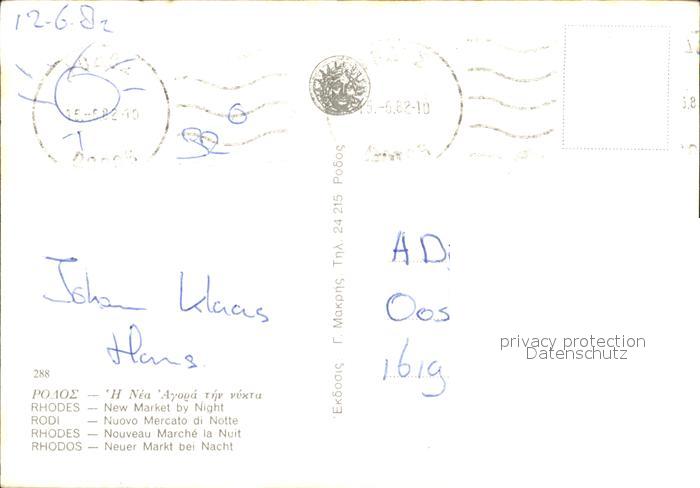 12-6.82
15.-6.82-10
15.-6.82-10
32
Johan Klaas
Hans.
A Di
Oos
161g
privacy protection
Datenschutz
Ἔκδοσις Γ. Μακρης Τηλ. 24 215 Ροδος
288
ΡΟΔΟΣ — Ἡ Νέα Ἀγορά τήν νύκτα
RHODES — New Market by Night
RODI — Nuovo Mercato di Notte
RHODES — Nouveau Marché la Nuit
RHODOS — Neuer Markt bei Nacht